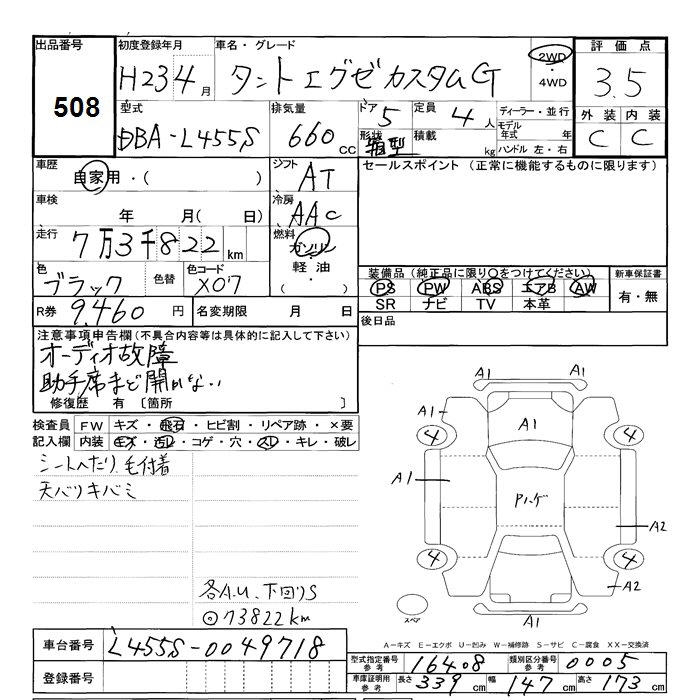 出品番号 初度登録年月 車名・グレード 評価点
508
H23 4月 タントエグゼカスタムG 2WD・4WD 3.5
型式 排気量 ドア 5 定員 4人 ディーラー・並行 外装 内装
DBA-L455S 660cc 形状 箱型 積載 kg モデル年式 年 ハンドル 左・右 C C
車歴 自家用・( ) シフト AT セールスポイント (正常に機能するものに限ります)
車検 年 月( 日) 冷房 AAC
走行 7万3千822km 燃料 ガソリン・軽油・( )
色 ブラック 色替 色コード X07 装備品(純正品に限り○をつけてください) 新車保証書
PS PW ABS エアB AW 有・無
SR ナビ TV 本革
R券 9,460円 名変期限 月 日 後日品
注意事項申告欄(不具合内容等は具体的に記入して下さい)
オーディオ故障
助手席まど開かない
修復歴 有 〔箇所 〕
検査員 FW キズ・飛石・ヒビ割・リペア跡・×要
記入欄 内装 キズ・汚レ・コゲ・穴・スレ・キレ・破レ
シートへたり、毛付着
天バリキバミ
各A.U、下回りS
◎73822km
A1
A1 A1
4 4
A1 Pハゲ
A2
4 4
A2
スペア A1
A-キズ E-エクボ U-凹み W-補修跡 S-サビ C-腐食 XX-交換済
車台番号 L455S-0049718
型式指定番号 参考 16408 類別区分番号 参考 0005
登録番号
車庫証明用 参考 長さ 339cm 幅 147cm 高さ 173cm